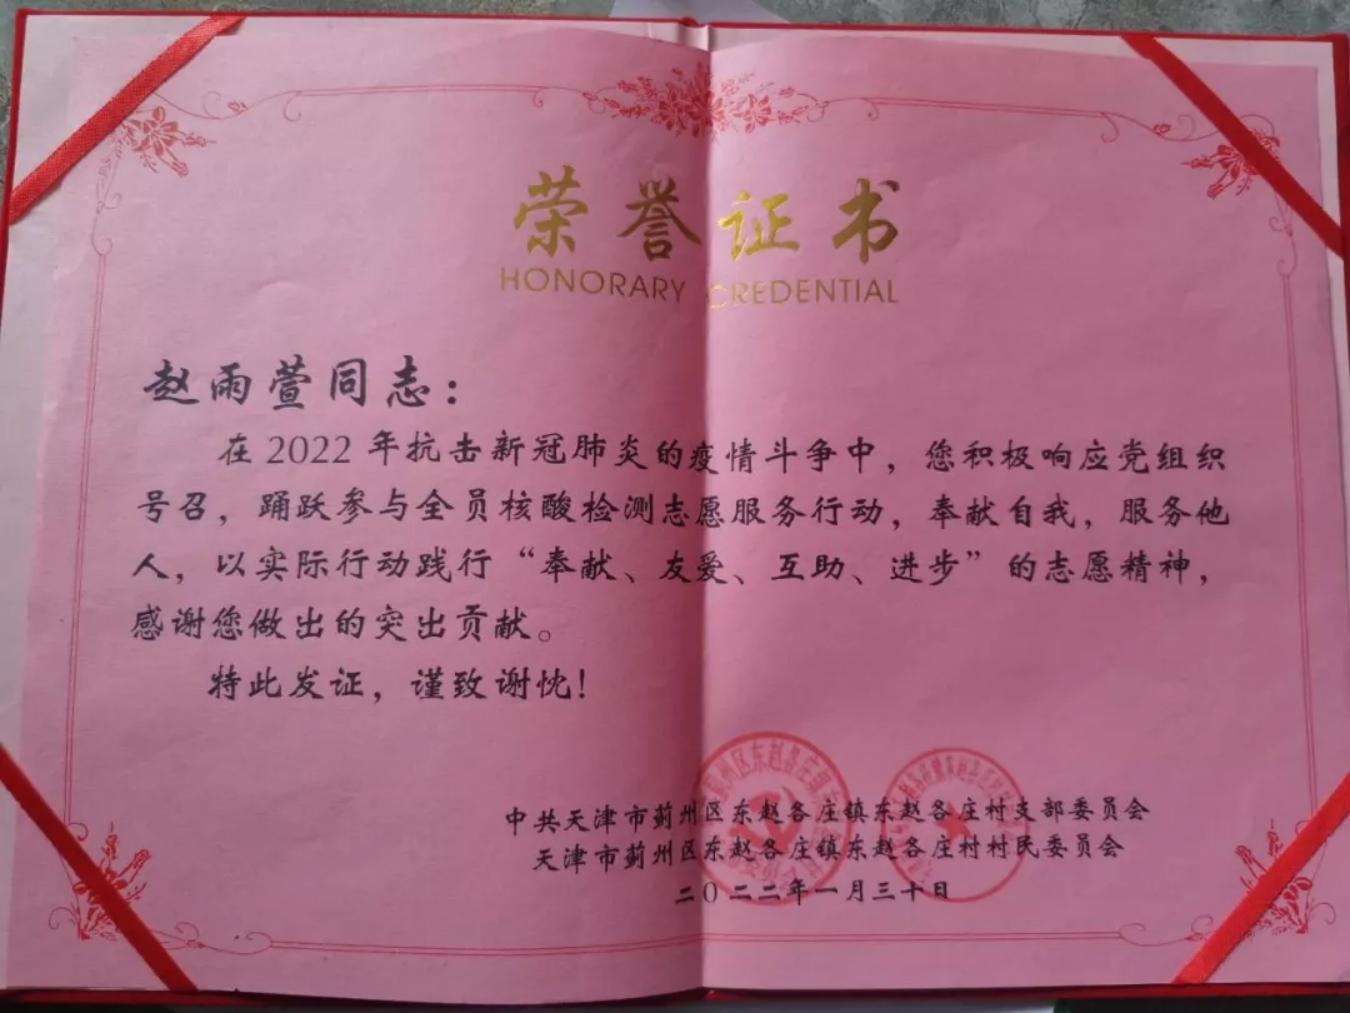 荣誉证书
HONORARY CREDENTIAL
赵雨萱同志：
在2022年抗击新冠肺炎的疫情斗争中，您积极响应党组织
号召，踊跃参与全员核酸检测志愿服务行动，奉献自我，服务他
人，以实际行动践行“奉献、友爱、互助、进步”的志愿精神，
感谢您做出的突出贡献。
特此发证，谨致谢忱！
中共天津市蓟州区东赵各庄镇东赵各庄村支部委员会
天津市蓟州区东赵各庄镇东赵各庄村村民委员会
二〇二二年一月三十日